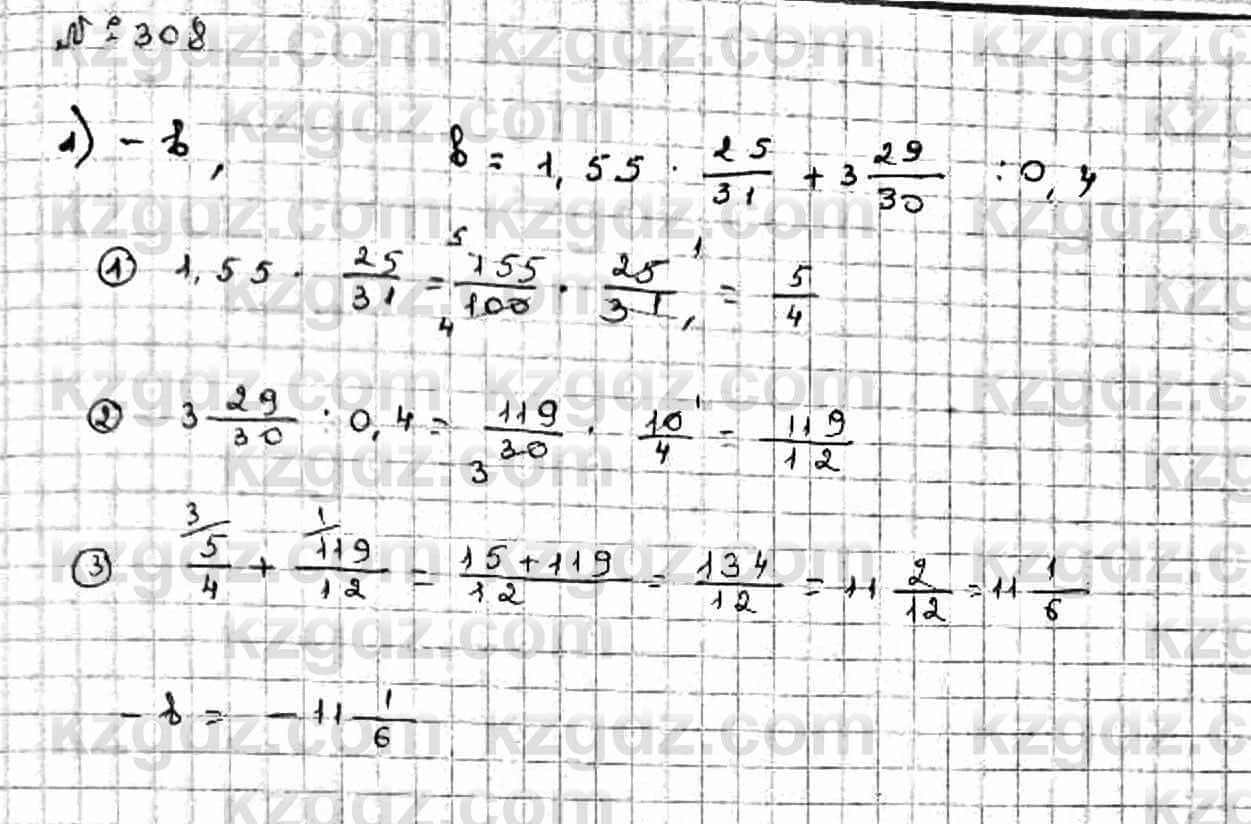 № 308
1) - b, b = 1,55 · 25/31 + 3 29/30 : 0,4
① 1,55 · 25/31 = 155/100 · 25/31 = 5/4
② 3 29/30 : 0,4 = 119/30 · 10/4 = 119/12
③ 5/4 + 119/12 = 15+119/12 = 134/12 = 11 2/12 = 11 1/6
- b = - 11 1/6
kzgdz.com